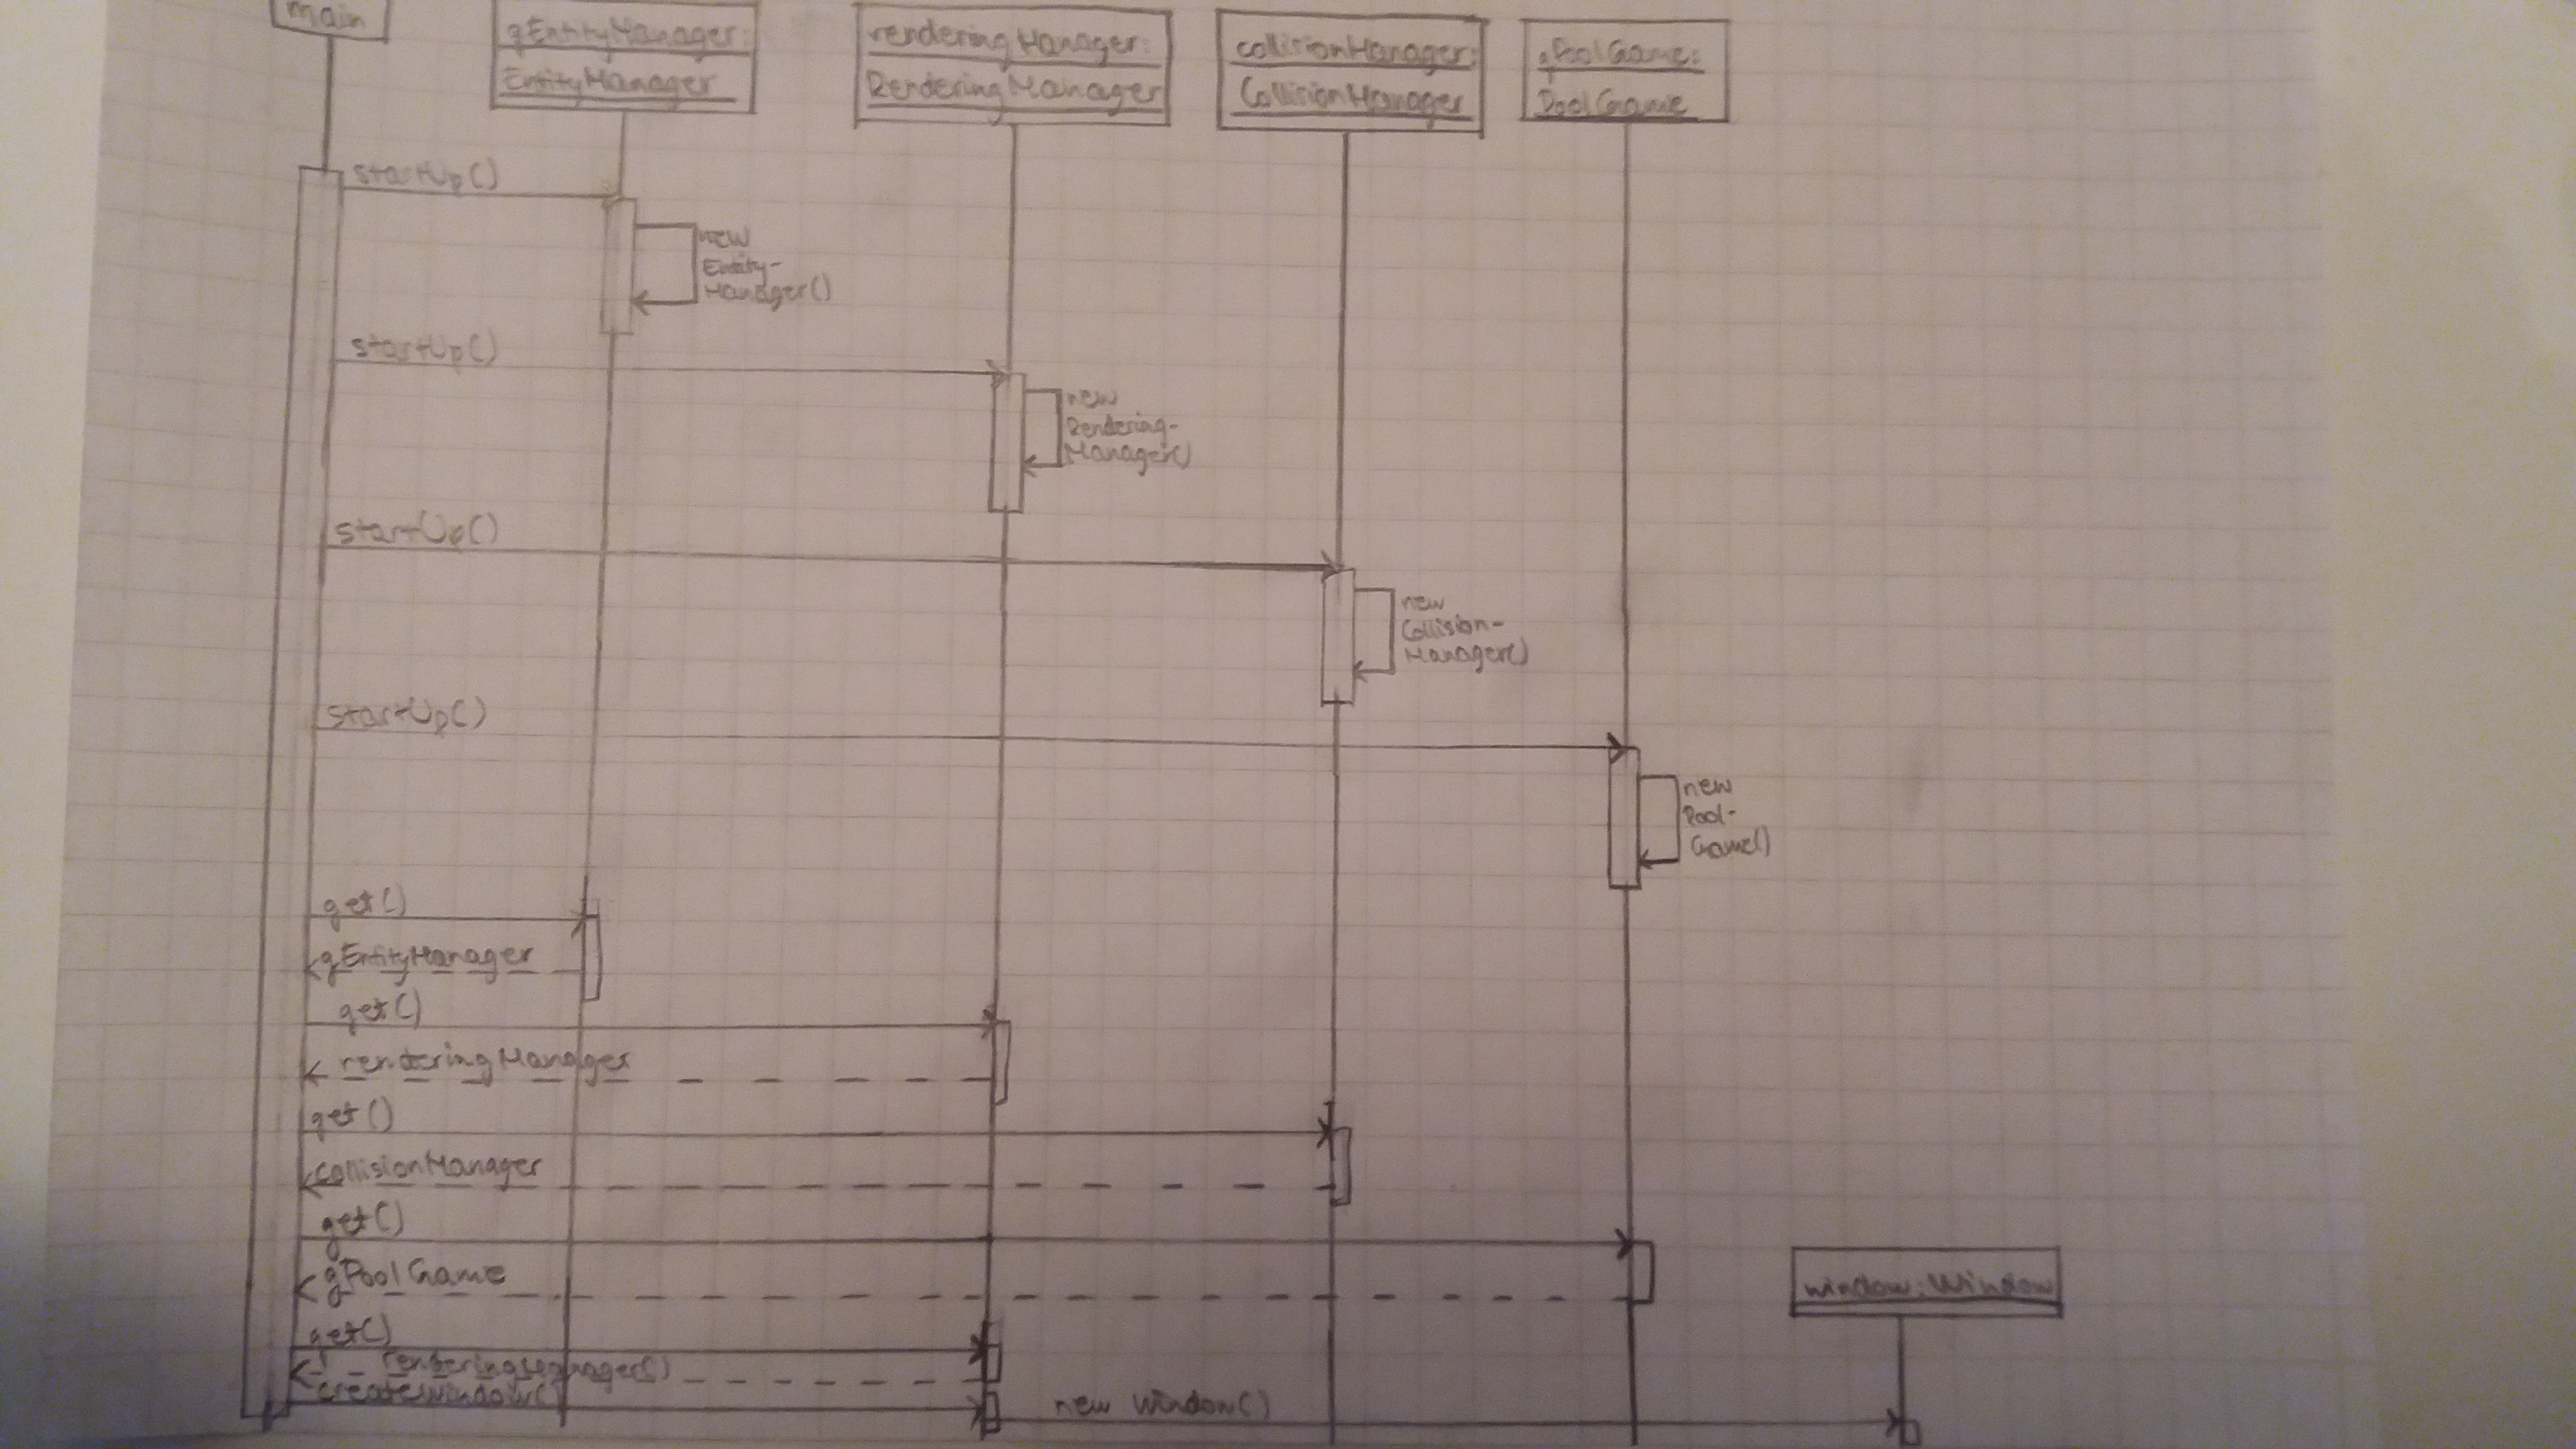 main
gEntityManager:
EntityManager
renderingManager:
RenderingManager
collisionManager:
CollisionManager
gPoolGame:
PoolGame
startUp()
new
Entity-
Manager()
startUp()
new
Rendering-
Manager()
startUp()
new
Collision-
Manager()
startUp()
new
Pool-
Game()
get()
gEntityManager
get()
renderingManager
get()
collisionManager
get()
gPoolGame
window:Window
get()
renderingManager()
createWindow()
new Window()